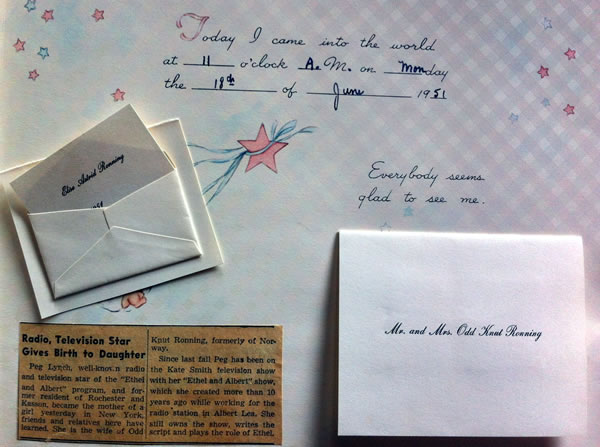 Today I came into the world
at 11 o'clock A.M. on Monday
the 18th of June 1951
Everybody seems
glad to see me.
Elise Astrid Ronning
1951
Mr. and Mrs. Odd Knut Ronning
Radio, Television Star
Gives Birth to Daughter
Peg Lynch, well-known radio
and television star of the "Ethel
and Albert" program, and for-
mer resident of Rochester and
Kasson, became the mother of a
girl yesterday in New York,
friends and relatives here have
learned. She is the wife of Odd
Knut Ronning, formerly of Nor-
way.
Since last fall Peg has been on
the Kate Smith television show
with her "Ethel and Albert" show,
which she created more than 10
years ago while working for the
radio station in Albert Lea. She
still owns the show, writes the
script and plays the role of Ethel.